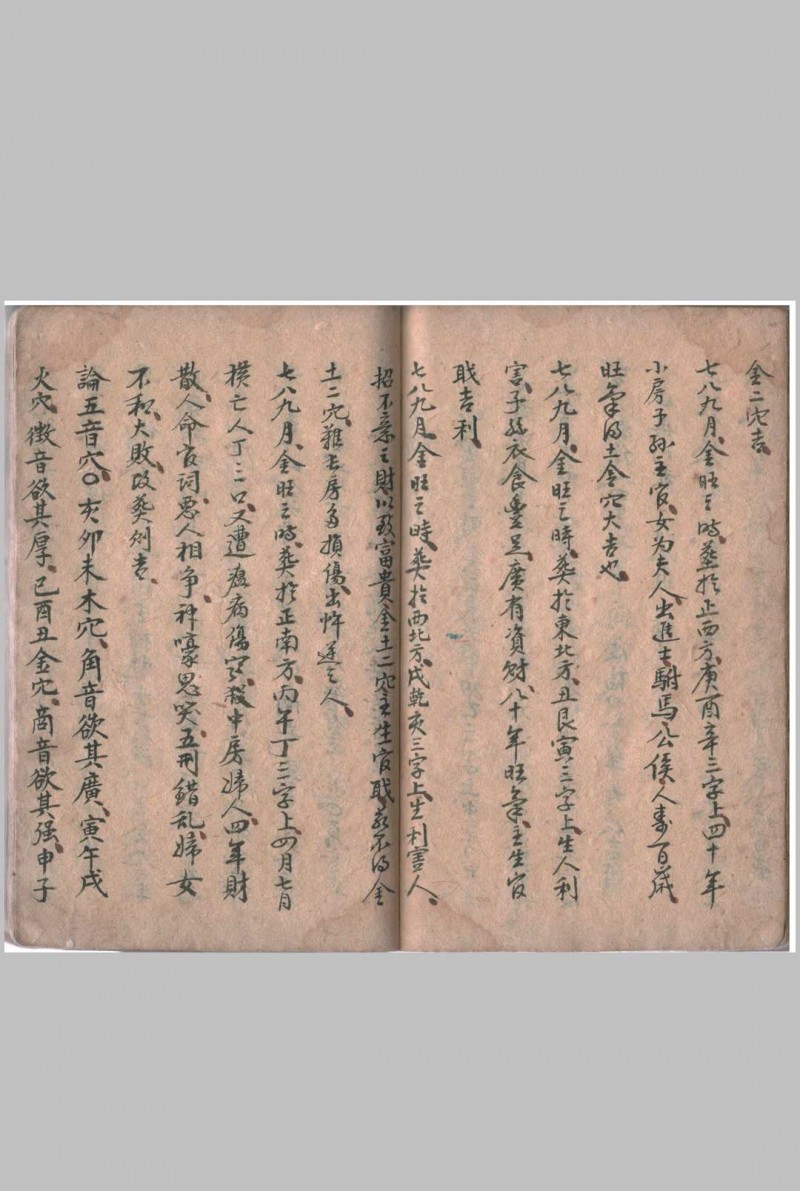 金二穴吉
七八九月金旺之時葬於正西方庚酉辛三字上四十年
小房子孫主官女为夫人出進士駙馬公侯人壽百歲
旺氣得土金穴大吉也
七八九月金旺之時葬於東北方丑艮寅三字上生人利
害子孫衣食豊足廣有資財八十年旺氣主生官
職吉利
七八九月金旺之時葬於西北方戌乾亥三字上生利害人
招不意之財以致富貴金土二穴主生官職若不得金
土二穴難長房多損傷出忤逆之人
七八九月金旺之時葬於正南方丙午丁三字上四月七日
横亡人丁三口又遭瘟病傷寒殺中房婦人四年財
散人命官词惡人相争神嚎鬼哭五刑錯乱婦女
不和大敗改葬则吉
論五音穴〇亥卯未木穴角音欲其廣寅午戌
火穴徵音欲其厚巳酉丑金穴商音欲其强申子